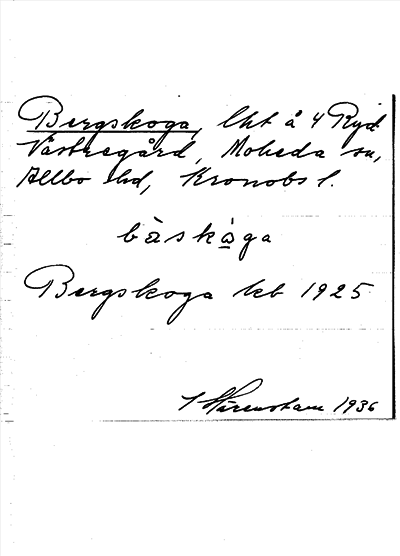 Bergskoga, lht å 4 Ryd
Västregård, Moheda sn,
Allbo hd, Kronobs l.
bàskåga
Bergskoga kb 1925
1936